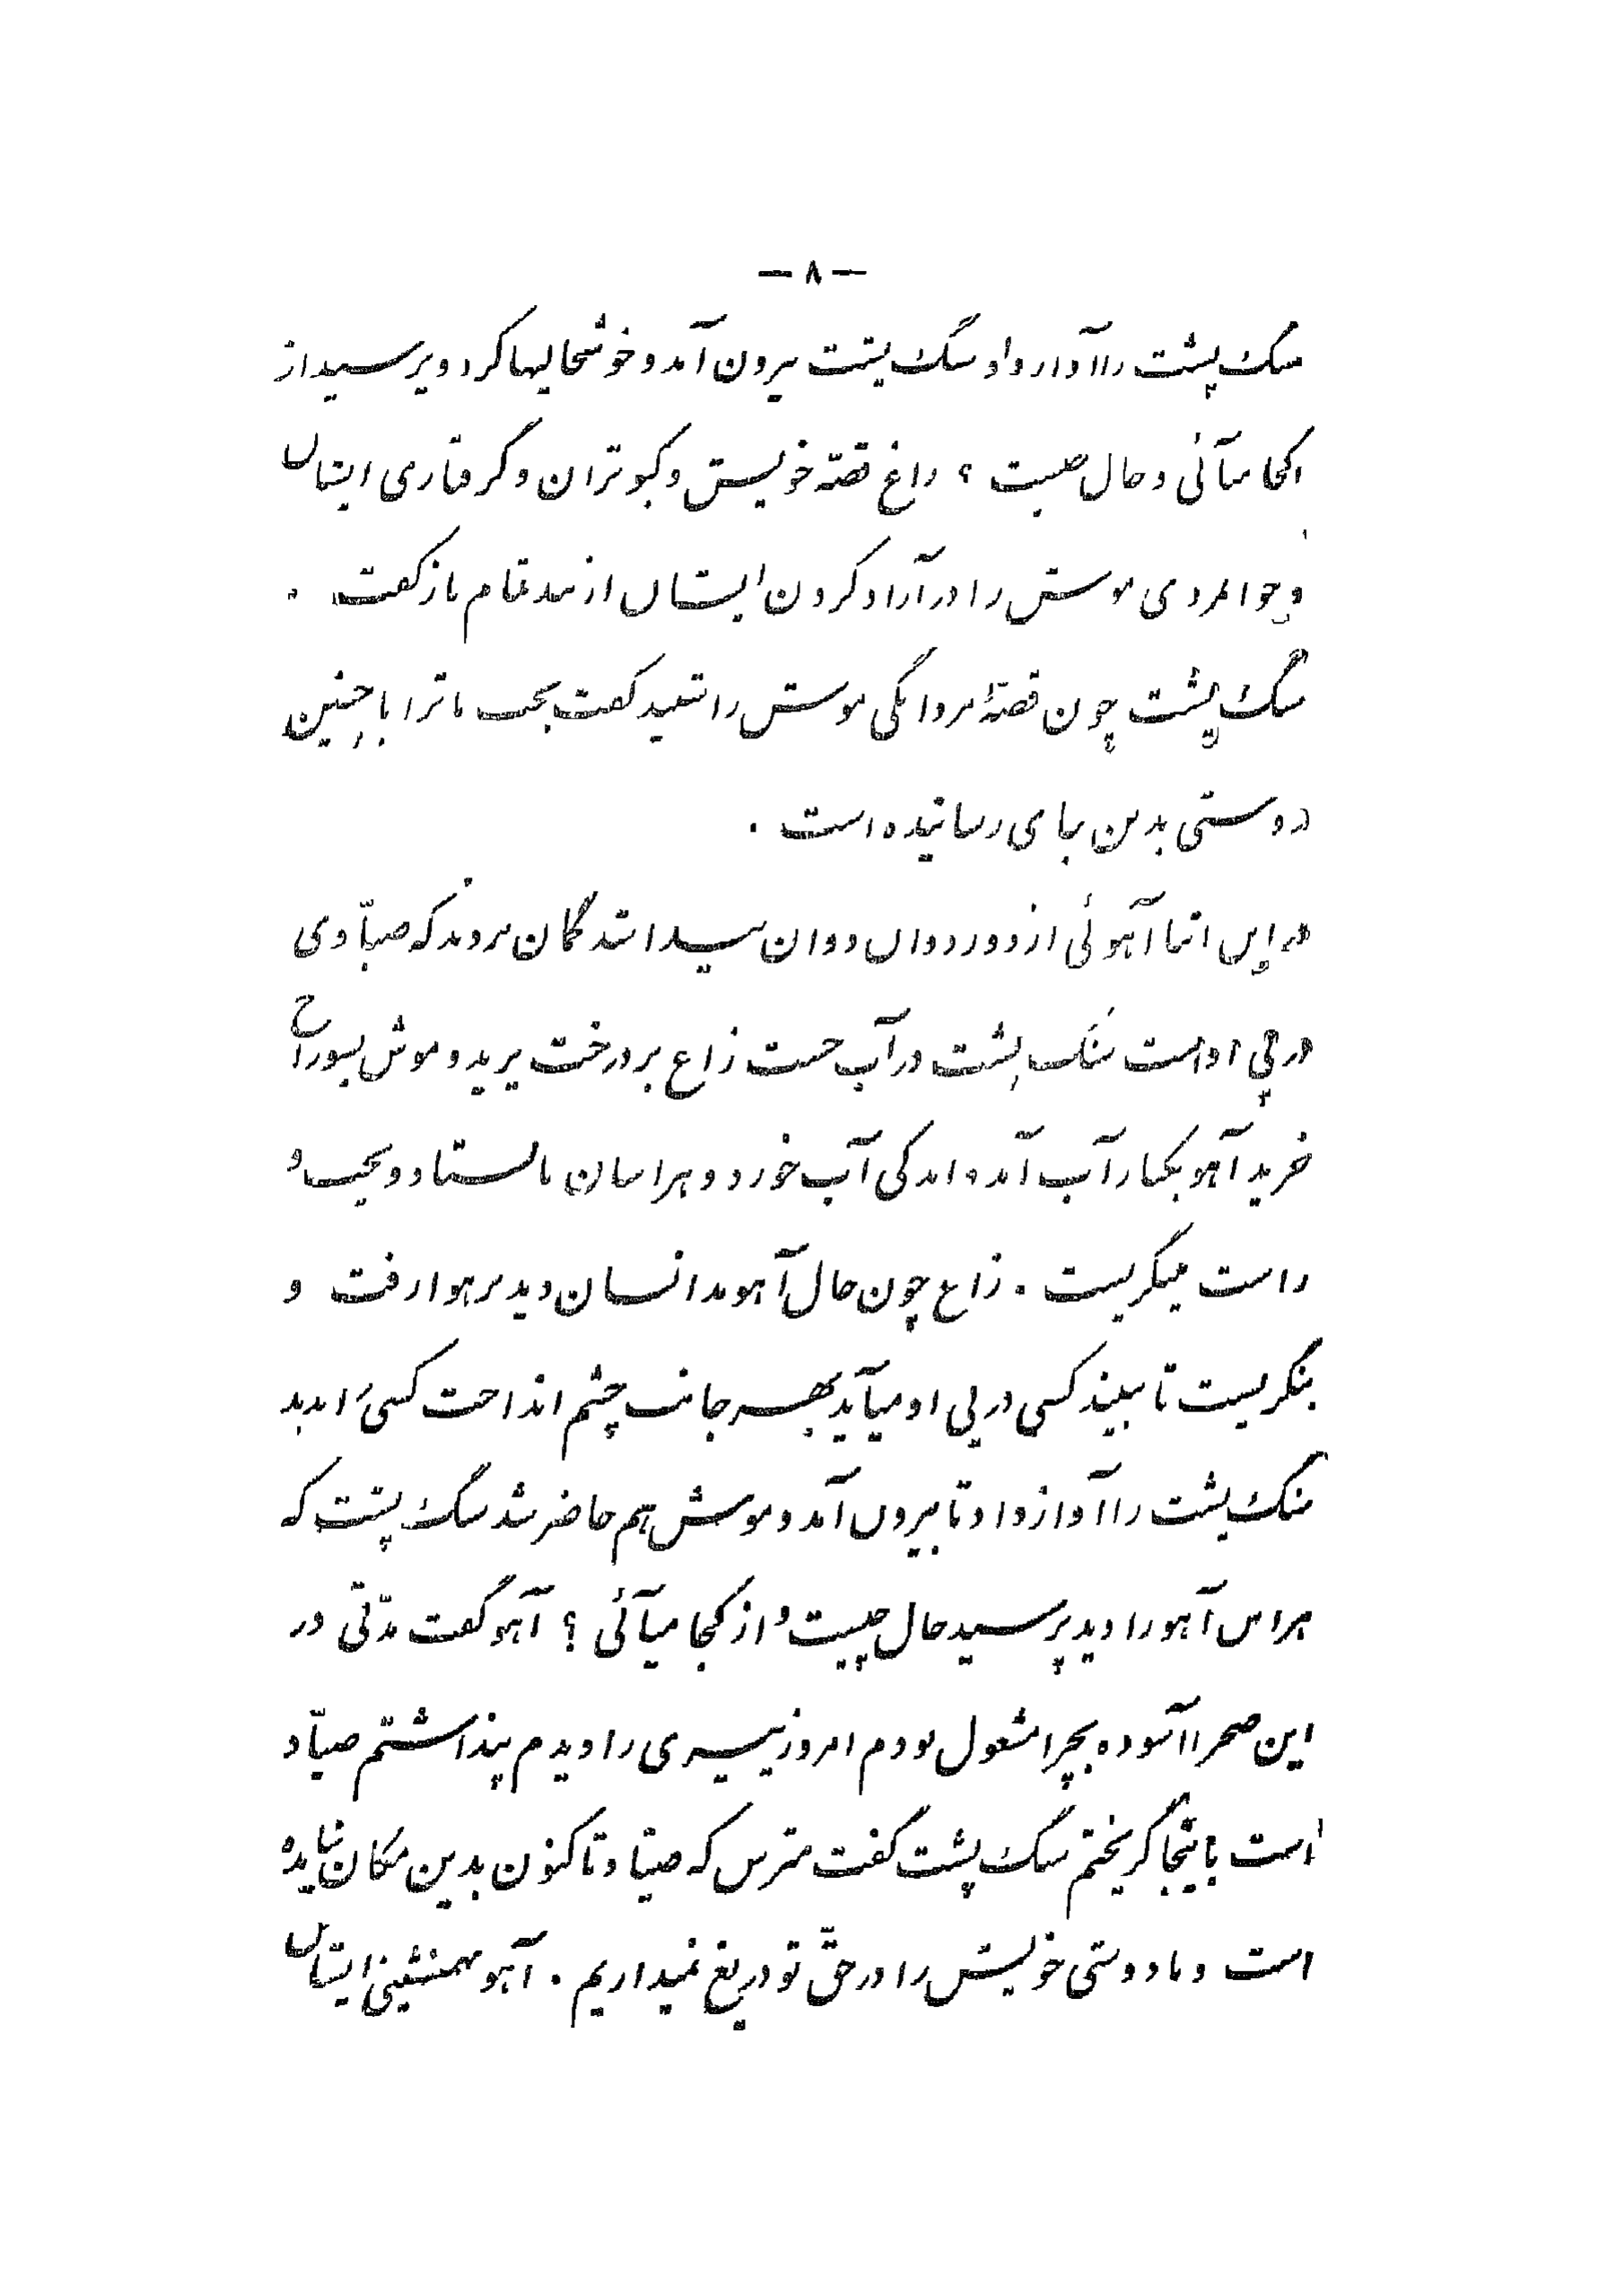 — ۸ —
سنگ پشت را آواز داد سنگ پشت بیرون آمد و خوشحالیها کرد و پرسید از
کجا میآئی و حال چیست ؟ زاغ قصّه خویش و کبوتران و گرفتاری ایشان
و جوانمردی موش را در آزاد کردن ایشان از بند تمام بازگفت .
سنگ پشت چون قصّهٔ مردانگی موش را شنید گفت بخت ما ترا با چنین
دوستی بدین جای رسانیده است .
در این اثنا آهوئی از دور دوان دوان پیدا شد گمان بردند که صیّادی
در پی او است سنگ پشت در آب جست زاغ بر درخت پرید و موش بسوراخ
خزید آهو بکنار آب آمد و اندکی آب خورد و هراسان بایستاد و بچپ و
راست مینگریست . زاغ چون حال آهو بدانسان دید بر هوا رفت و
بنگریست تا ببیند کسی در پی او میآید بهر جانب چشم انداخت کسی را ندید
سنگ پشت را آواز داد تا بیرون آمد و موش هم حاضر شد سنگ پشت که
هراس آهو را دید پرسید حال چیست و از کجا میآئی ؟ آهو گفت مدّتی در
این صحرا آسوده بچرا مشغول بودم امروز پیری را دیدم پنداشتم صیّاد
است باینجا گریختم سنگ پشت گفت مترس که صیّاد تا کنون بدین مکان نیامده
است و ما دوستی خویش را در حقّ تو دریغ نمیداریم . آهو همنشینی ایشان